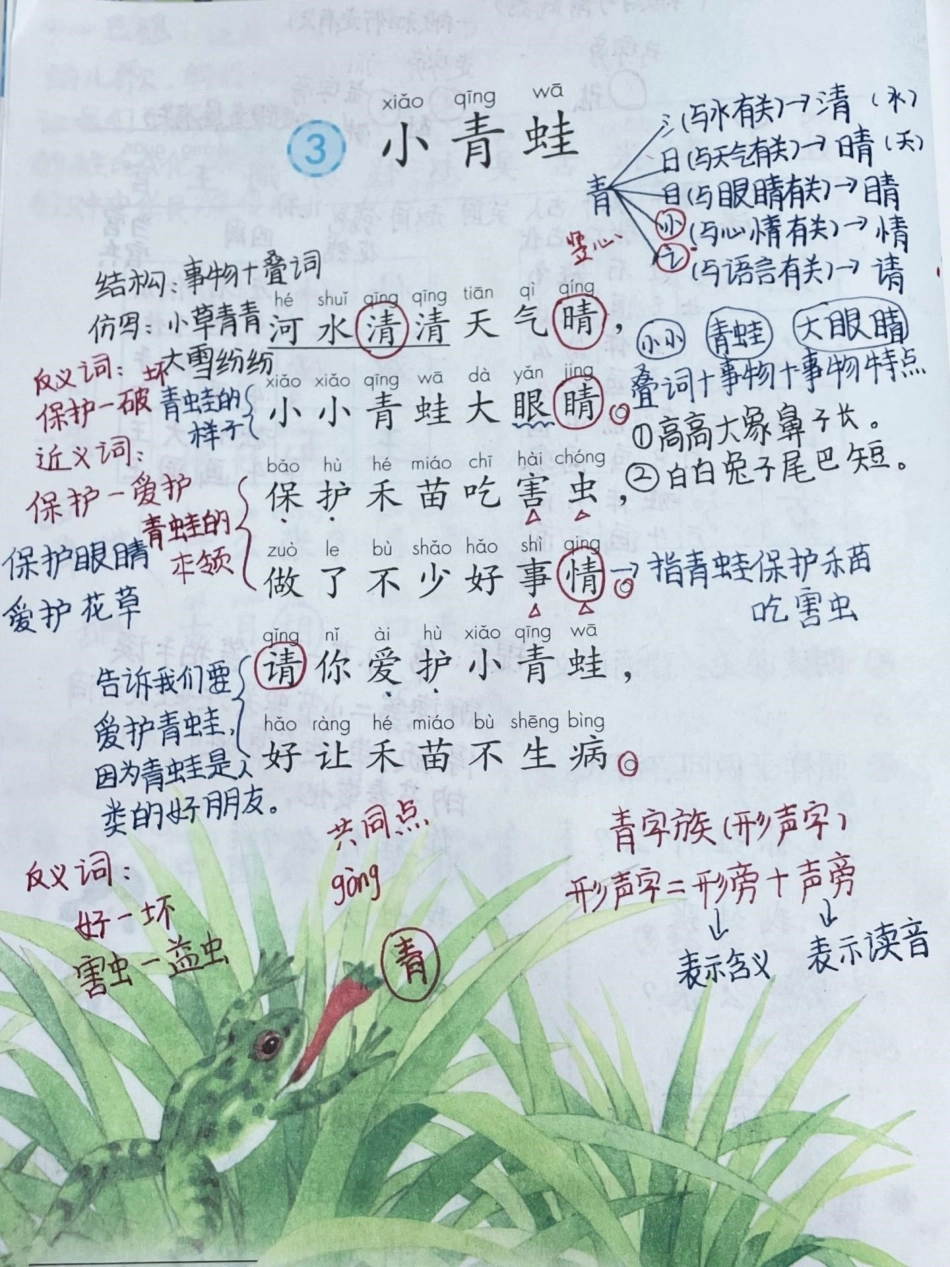 xiǎo qīng wā
3 小青蛙
青
氵(与水有关)→清(水)
日(与天气有关)→晴(天)
目(与眼睛有关)→睛
忄(与心情有关)→情
讠(与语言有关)→请
竖心
结构:事物+叠词
仿写:小草青青
大雪纷纷
hé shuǐ qīng qīng tiān qì qíng
河水清清天气晴,
小小 青蛙 大眼睛
叠词+事物+事物特点
①高高大象鼻子长。
②白白兔子尾巴短。
反义词:坏
保护—破
近义词:
保护—爱护
保护眼睛
爱护花草
青蛙的
样子
xiǎo xiǎo qīng wā dà yǎn jing
小小青蛙大眼睛。
青蛙的
本领
bǎo hù hé miáo chī hài chóng
保护禾苗吃害虫,
zuò le bù shǎo hǎo shì qing
做了不少好事情。
→指青蛙保护禾苗
吃害虫
告诉我们要
爱护青蛙,
因为青蛙是人
类的好朋友。
qǐng nǐ ài hù xiǎo qīng wā
请你爱护小青蛙,
hǎo ràng hé miáo bù shēng bìng
好让禾苗不生病。
反义词:
好—坏
害虫—益虫
共同点
gòng
青
青字族(形声字)
形声字=形旁+声旁
↓ ↓
表示含义 表示读音